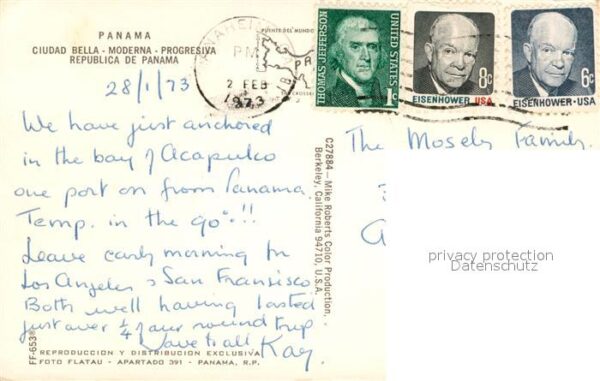 PANAMA
CIUDAD BELLA - MODERNA - PROGRESIVA
REPUBLICA DE PANAMA
28/1/73
PM
2 FEB
1973
PUENTE DEL MUNDO
THOMAS JEFFERSON
UNITED STATES
1c
8c
EISENHOWER USA
6c
EISENHOWER · USA
We have just anchored
in the bay of Acapulco
one port on from Panama.
Temp. in the 90°!!
Leave early morning for
Los Angeles & San Francisco
Both well having lasted
just over ¼ of our round trip
Love to all Kay.
C27884 — Mike Roberts Color Production,
Berkeley, California 94710, U.S.A.
The Mosels Family
privacy protection
Datenschutz
FF-653
REPRODUCCION Y DISTRIBUCION EXCLUSIVA
FOTO FLATAU - APARTADO 391 - PANAMA, R.P.